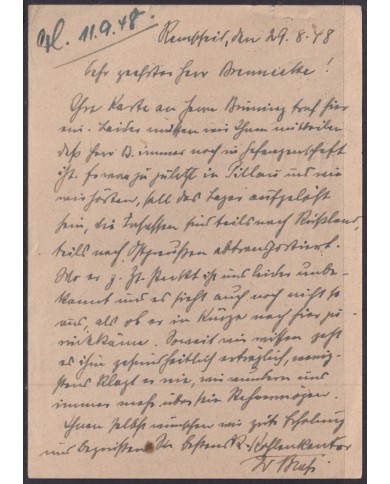 11.9.48.
Remscheid, den 29.8.48
Sehr geehrter Herr Brennecke!
Ihre Karte an Herrn Brüning traf hier
ein. Leider müssen wir Ihnen mitteilen
daß Herr B. immer noch in Gefangenschaft
ist. Er war zuletzt in Pillau und wie
wir hörten, soll das Lager aufgelöst
sein, die Insassen sind teils nach Rußland,
teils nach Ostpreußen abtransportiert.
Wo er z. Zt. steckt ist uns leider unbe-
kannt und es sieht auch noch nicht so
aus, als ob er in Kürze nach hier zu-
rückkäme. Soweit wir wissen geht
es ihm gesundheitlich erträglich, wenig-
stens klagt er nie, wir wundern uns
immer mehr über sein
Ihnen selbst wünschen wir gute Erholung
und begrüssen Sie bestens